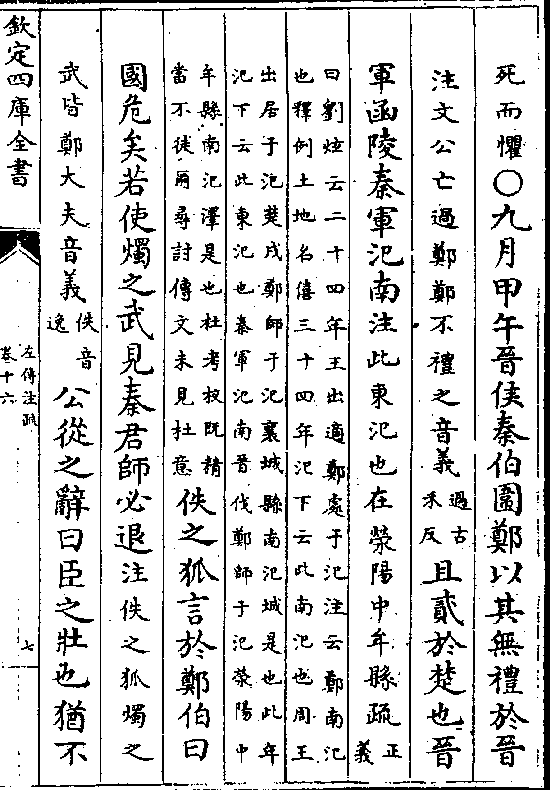 死而懼〇九月甲午晉侯秦伯圍鄭以其無禮於晉
注文公亡過鄭鄭不禮之音義過古禾反且貳於楚也晉
軍函陵秦軍氾南注此東氾也在滎陽中牟縣疏正義
曰劉炫云二十四年王出適鄭處于氾注云鄭南氾
也釋例土地名僖三十四年氾下云此南氾也周王
出居于氾楚戍鄭師于氾襄城縣南氾城是也此年
氾下云此東氾也秦軍氾南晉伐鄭師于氾滎陽中
牟縣南氾澤是也杜考校既精
當不徒爾尋討傳文未見杜意佚之狐言於鄭伯曰
國危矣若使燭之武見秦君師必退注佚之狐燭之
武皆鄭大夫音義佚音逸公從之辭曰臣之壯也猶不
欽定四庫全書
左傳注疏
卷十六
七